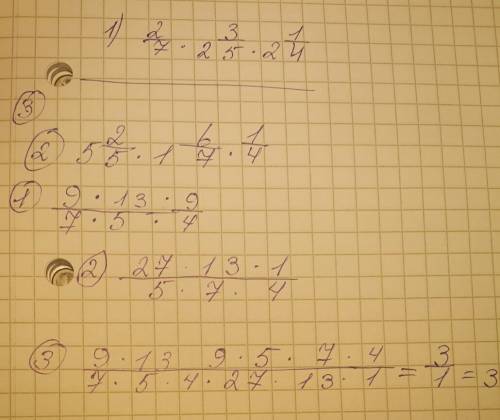 1) 2/7 · 2 3/5 · 2 1/4
③
② 5 2/5 · 1 6/7 · 1/4
① 9 · 13 · 9 / 7 · 5 · 4
② 27 · 13 · 1 / 5 · 7 · 4
③ 9 · 13 9 · 5 · 7 · 4 / 7 · 5 · 4 · 27 · 13 · 1 = 3/1 = 3